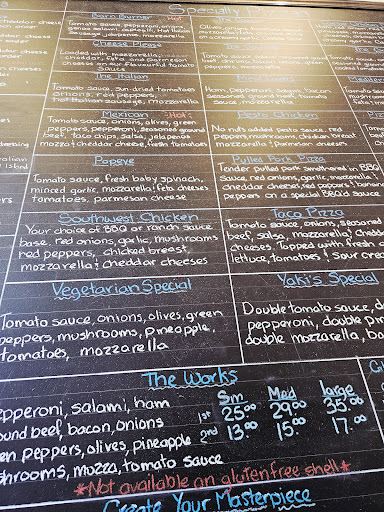 Specialty
Barn Burner Hot
Tomato sauce, pepperoni, onions,
salami, jalapenos, mozzarella
Cheese Please
Loaded with mozzarella,
cheddar, feta and parmesan
cheese on our flavourful tomato
sauce
The Italian
Tomato sauce, sun dried tomatoes
onions, red peppers,
hot Italian sausage, mozzarella
Ham, Pepperoni, salami, bacon
seasoned ground beef, tomato
sauce, mozzarella
Mexican Hot!
Tomato sauce, onions, olives, green
peppers, pepperoni, seasoned ground
beef, taco chips, salsa, jalapenos
mozza & cheddar cheese, fresh tomatoes
Pesto Chicken
No nuts added pesto sauce, red
peppers, mushrooms, chicken breast
mozzarella & parmesan cheese
Popeye
Tomato sauce, fresh baby spinach,
minced garlic, mozzarella & feta cheeses
tomatoes, parmesan cheese
Pulled Pork Pizza
Tender pulled pork smothered in BBQ
sauce, red onions, garlic, mozzarella &
cheddar cheese, red peppers & banana
peppers on a special BBQ'd sauce
Southwest Chicken
Your choice of BBQ or ranch sauce
base, red onions, garlic, mushrooms
red peppers, chicked breast,
mozzarella & cheddar cheeses
Taco Pizza
Tomato sauce, onions, seasoned
beef, salsa, mozzarella & chedd
cheeses. Topped with fresh c
lettuce, tomatoes & sour crea
Vegetarian Special
Tomato sauce, onions, olives, green
peppers, mushrooms, pineapple,
tomatoes, mozzarella
Yaki's Special
Double tomato sauce, d
pepperoni, double pin
double mozzarella, ba
The Works
Sm Med large
pperoni, salami, ham 1st 25.00 29.00 35.00
ound beef, bacon, onions
en peppers, olives, pineapple 2nd 13.00 15.00 17.00
shrooms, mozza, tomato sauce
*Not available on gluten free shell*
Create Your Masterpiece